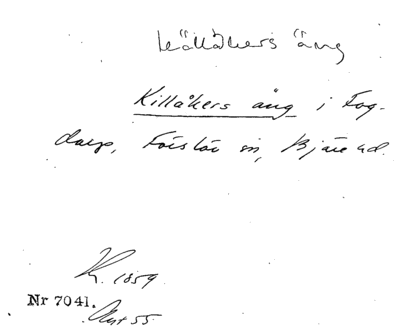 Källåkers äng
Killåkers äng i Fog-
darp, Förslöv sn, Bjäre hd.
K. 1859
Nr 7041.
Akt 55